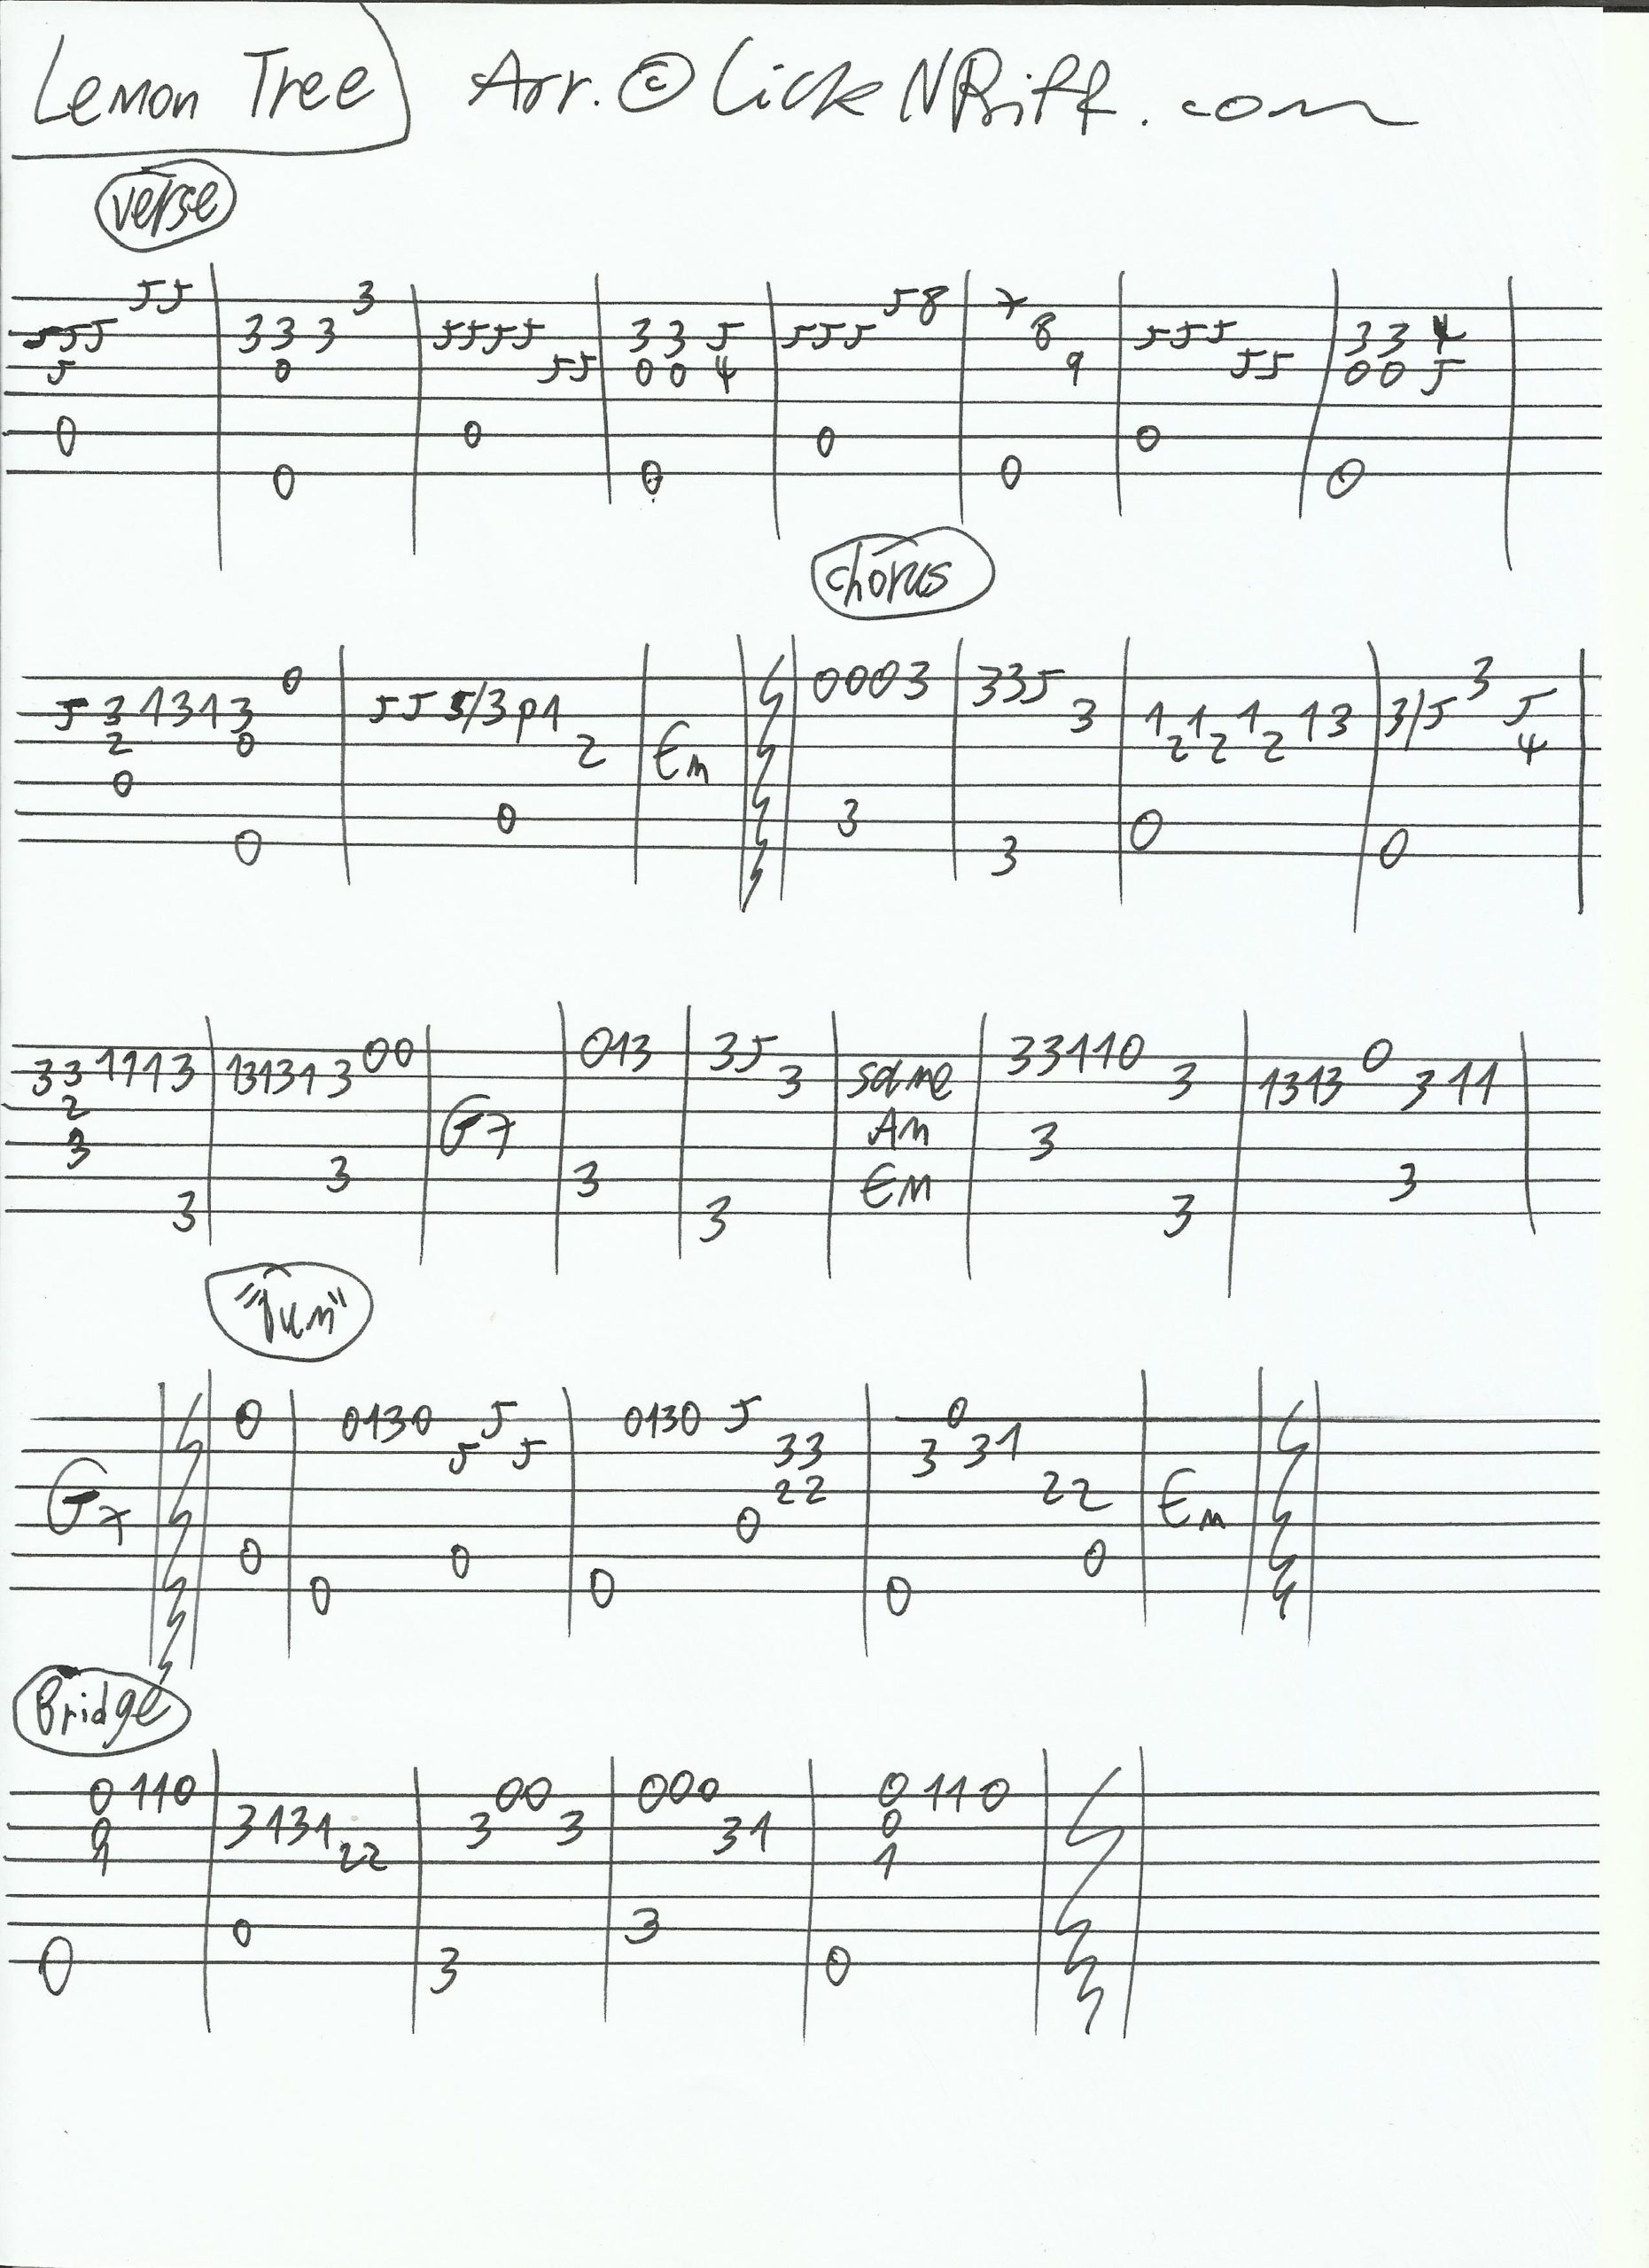 Lemon Tree Arr. © LickNRiff.com
verse
55 3 58 7
555 333 5555 335 555 8 555 334
5 0 55 004 9 55 005
0 0 0 0
0 0 0 0
chorus
0 0003 335 3
5 3 1 3 1 3 55 5/3p1 3 1 1 1 13 3/5 5
2 0 2 Em 2 2 2 4
0
0 3 0
0 3 0
013 35 33110 0
331113 131313 00 3 same 3 1313 311
2
3 G7 Am 3
3 3 Em 3
3 3 3
"Dum"
0 0130 5 0130 5 0
5 5 33 3 31
G7 22 22 Em
0
0 0 0
0 0 0
Bridge
0 110 00 000 0 110
0 3131 3 3 31 0
1 22 1
0 3
0 3 0